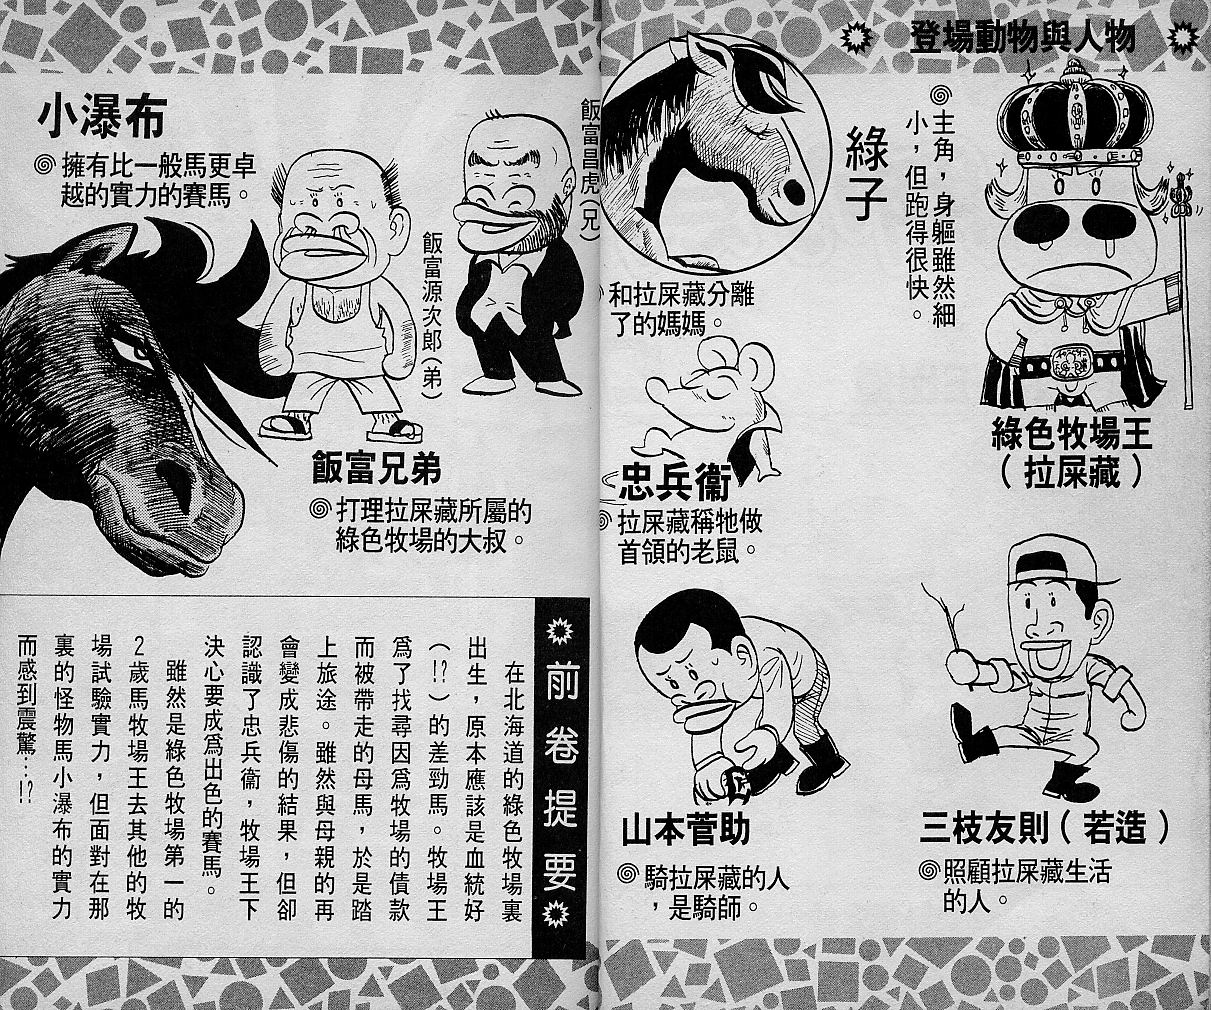 登場動物與人物
◎主角，身軀雖然細
小，但跑得很快。
綠色牧場王
（拉屎藏）
綠子
和拉屎藏分離
了的媽媽。
忠兵衞
◎拉屎藏稱牠做
首領的老鼠。
三枝友則（若造）
◎照顧拉屎藏生活
的人。
山本菅助
◎騎拉屎藏的人
，是騎師。
飯富昌虎（兄）
飯富源次郎（弟）
飯富兄弟
◎打理拉屎藏所屬的
綠色牧場的大叔。
小瀑布
◎擁有比一般馬更卓
越的實力的賽馬。
前卷提要
在北海道的綠色牧場裏
出生，原本應該是血統好
（!?）的差勁馬。牧場王
爲了找尋因爲牧場的債款
而被帶走的母馬，於是踏
上旅途。雖然與母親的再
會變成悲傷的結果，但卻
認識了忠兵衞，牧場王下
決心要成爲出色的賽馬。
雖然是綠色牧場第一的
2歲馬牧場王去其他的牧
場試驗實力，但面對在那
裏的怪物馬小瀑布的實力
而感到震驚…!?